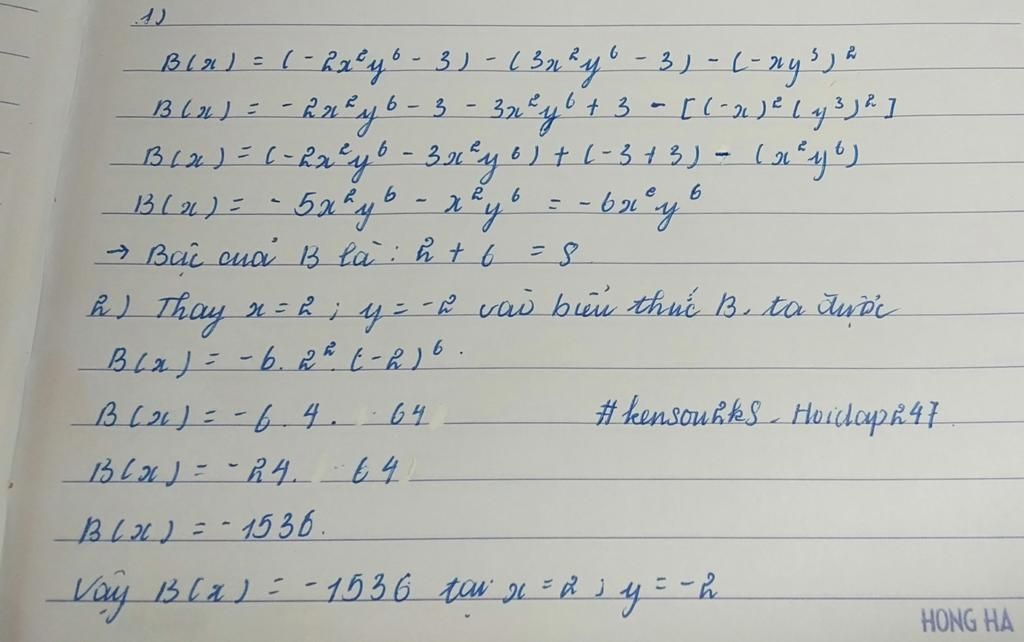 1)
B(x) = (-2x²y⁶ - 3) - (3x²y⁶ - 3) - (-xy³)²
B(x) = -2x²y⁶ - 3 - 3x²y⁶ + 3 - [(-x)²(y³)²]
B(x) = (-2x²y⁶ - 3x²y⁶) + (-3 + 3) - (x²y⁶)
B(x) = -5x²y⁶ - x²y⁶ = -6x²y⁶
→ Bậc của B là: 2 + 6 = 8
2) Thay x = 2 ; y = -2 vào biểu thức B, ta được
B(x) = -6. 2². (-2)⁶.
B(x) = -6. 4. 64
#kensou2k8 - Hoidap247
B(x) = -24. 64
B(x) = -1536.
Vậy B(x) = -1536 tại x = 2 ; y = -2
HONG HA